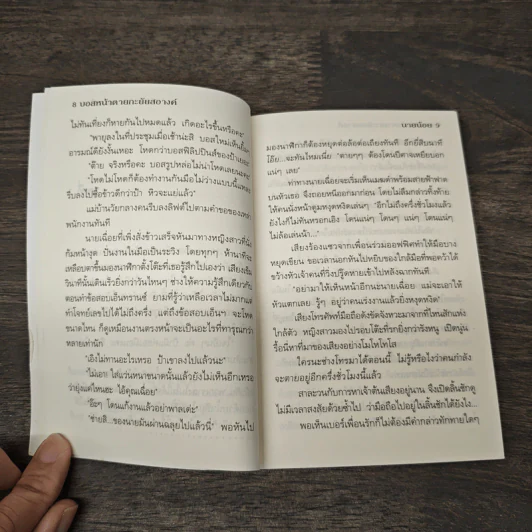 8 บอสหน้าตายกะยัยสอางค์
ไม่ทันเที่ยงก็หายกันไปหมดแล้ว เกิดอะไรขึ้นหรือคะ"
"พายุลงในที่ประชุมเมื่อเช้าน่ะสิ บอสใหม่เห็นยิ้ม
อารมณ์ดียังงั้นเหอะ โหดกว่าบอสฟิลิปปินส์ของป้าเยอะ"
"ต๊าย จริงหรือคะ บอสรูปหล่อไม่น่าโหดเลยนะคะ"
"โหดไม่โหดก็ต้องทำงานกันมือไม่ว่างแบบนี้แหละ
รีบลงไปซื้อข้าวดีกว่าป้า หิวจะแย่แล้ว"
แม่บ้านวัยกลางคนรีบลงลิฟต์ไปตามคำขอของเหล่า
พนักงานทันที
นายเฉื่อยที่เพิ่งสั่งข้าวเสร็จหันมาทางหญิงสาวที่นั่ง
ก้มหน้างุด ปั่นงานในมือเป็นระวิง โดยทุกๆ ห้านาทีจะ
เหลือบตาขึ้นมองนาฬิกาตั้งโต๊ะที่เธอรู้สึกไปเองว่า เสียงเข็ม
วินาทีนั้นเดินเร็วยิ่งกว่าวันไหนๆ ช่างให้ความรู้สึกเดียวกับ
ตอนทำข้อสอบเอ็นทรานซ์ ยามที่รู้ว่าเหลือเวลาไม่มากแต่
ทำโจทย์เลขไปได้ไม่ถึงครึ่ง แต่ถึงข้อสอบเอ็นฯ จะโหด
ขนาดไหน ก็ดูเหมือนงานตรงหน้าจะเป็นอะไรที่ทารุณกว่า
หลายเท่านัก
"เอิงไม่ทานอะไรเหรอ ป้าเขาลงไปแล้วนะ"
"ไม่เอา! ใส่แว่นหนาขนาดนั้นแล้วยังไม่เห็นอีกเหรอ
ว่ายุ่งแค่ไหนฮะ ไอ้คุณเฉื่อย"
"อ๊ะๆ โดนแก้งานแล้วอย่าพาลเด่ะ"
"ช่ายสิ...ของนายมันผ่านฉลุยไปแล้วนี่" พอหันไป
นายน้อย 9
มองนาฬิกาก็ต้องหยุดต่อล้อต่อเถียงทันที อีกยี่สิบนาที
โอ๊ย...จะทันไหมเนี่ย "ตายๆๆ ต้องโดนปีศาจเหยียบอก
แน่ๆ เลย"
ท่าทางนายเฉื่อยจะเริ่มเห็นเมฆดำพร้อมสายฟ้าฟาด
บนหัวเธอ จึงถอยหนีออกมาก่อน โดยไม่ลืมกล่าวทิ้งท้าย
ให้คนนั่งหน้าตูมหงุดหงิดเล่นๆ "อีกไม่ถึงครึ่งชั่วโมงแล้ว
ยังไงก็ไม่ทันหรอกเอิง โดนแน่ๆ โดนแน่ๆ แน่ๆ โดนแน่ๆ
ไม่ล้อเล่นน้า..."
เสียงร้องแซวจากเพื่อนร่วมออฟฟิศทำให้มือบาง
หยุดเขียน ขอเวลานอกหันไปหยิบของใกล้มือที่พอคว้าได้
ขว้างหัวเจ้าคนที่วิ่งปรู๊ดหายเข้าไปหลังฉากทันที
"อย่ามาให้เห็นหน้าอีกนะนายเฉื่อย แม่จะเอาให้
หัวแตกเลย รู้ๆ อยู่ว่าคนเร่งงานแล้วยิ่งหงุดหงิด"
เสียงโทรศัพท์มือถือดังขัดจังหวะมาจากที่ไหนสักแห่ง
ใกล้ตัว หญิงสาวมองไปรอบโต๊ะที่รกยิ่งกว่ารังหนู เปิดนู่น
รื้อนี่หาที่มาของเสียงอย่างโมโหโทโส
ใครนะช่างโทรมาได้ตอนนี้ ไม่รู้หรือไงว่าคนกำลัง
จะตายอยู่อีกครึ่งชั่วโมงนี้แล้ว
สาละวนกับการหาเจ้าต้นเสียงอยู่นาน จึงเปิดลิ้นชักดู
ไม่มีเวลาสงสัยด้วยซ้ำไป ว่ามือถือไปอยู่ในลิ้นชักได้ยังไง...
พอเห็นเบอร์เพื่อนรักก็ไม่ต้องมีคำกล่าวทักทายใดๆ